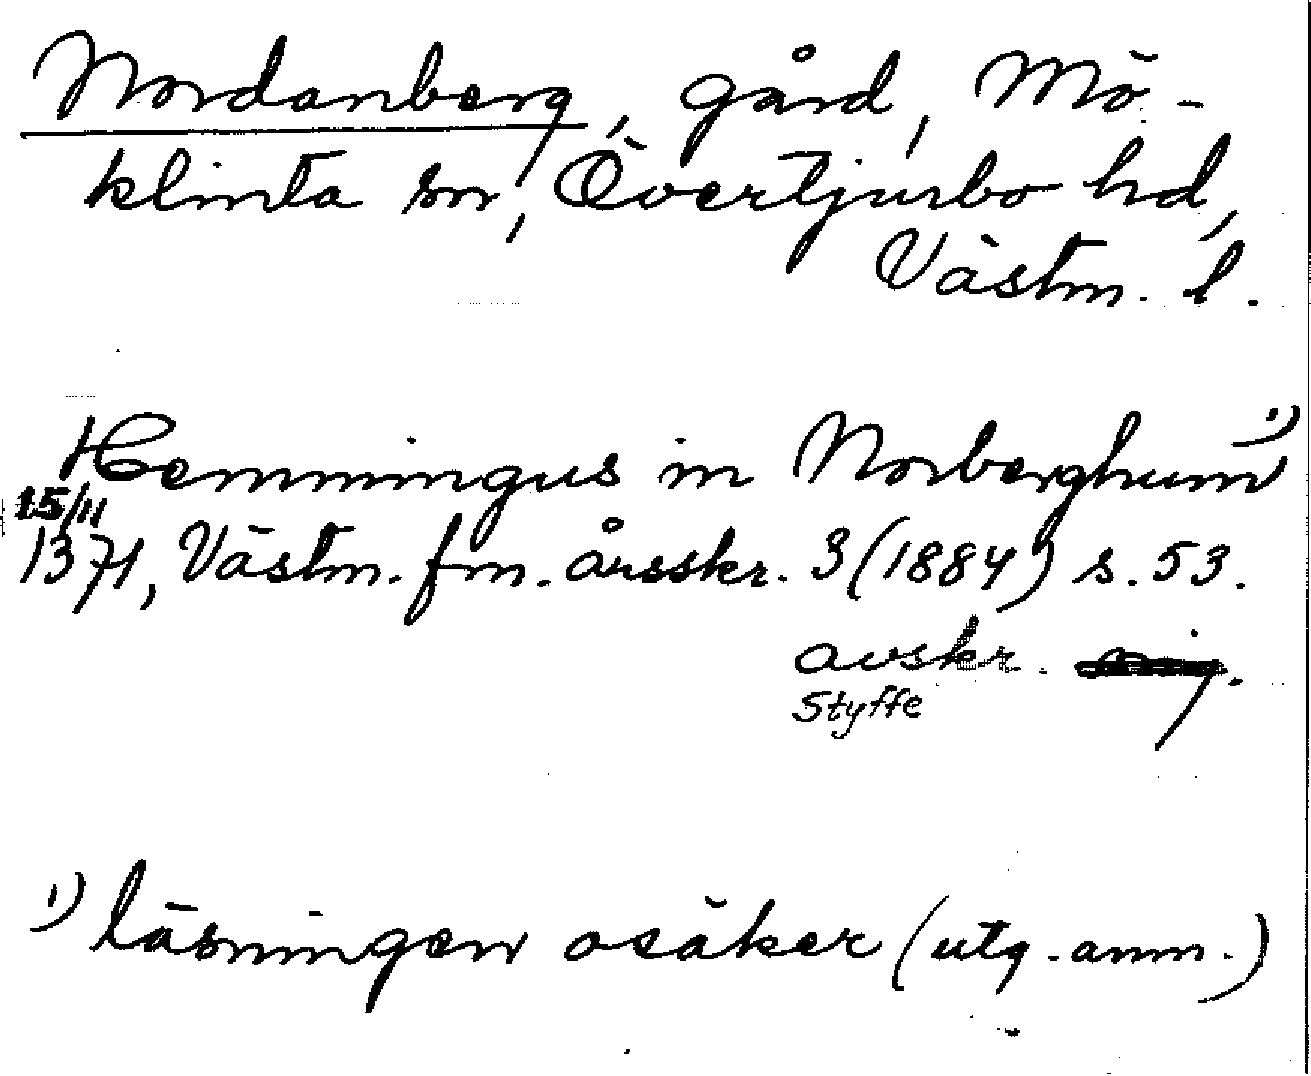 Nordanberg, gård, Mö-
klinta sn, Övertjurbo hd,
Västm. l.
Hemmingus in Norberghum 1)
15/11
1371, Västm. fm. årsskr. 3 (1884) s. 53.
avskr.
Styffe
1) läsningen osäker (utg. anm.)